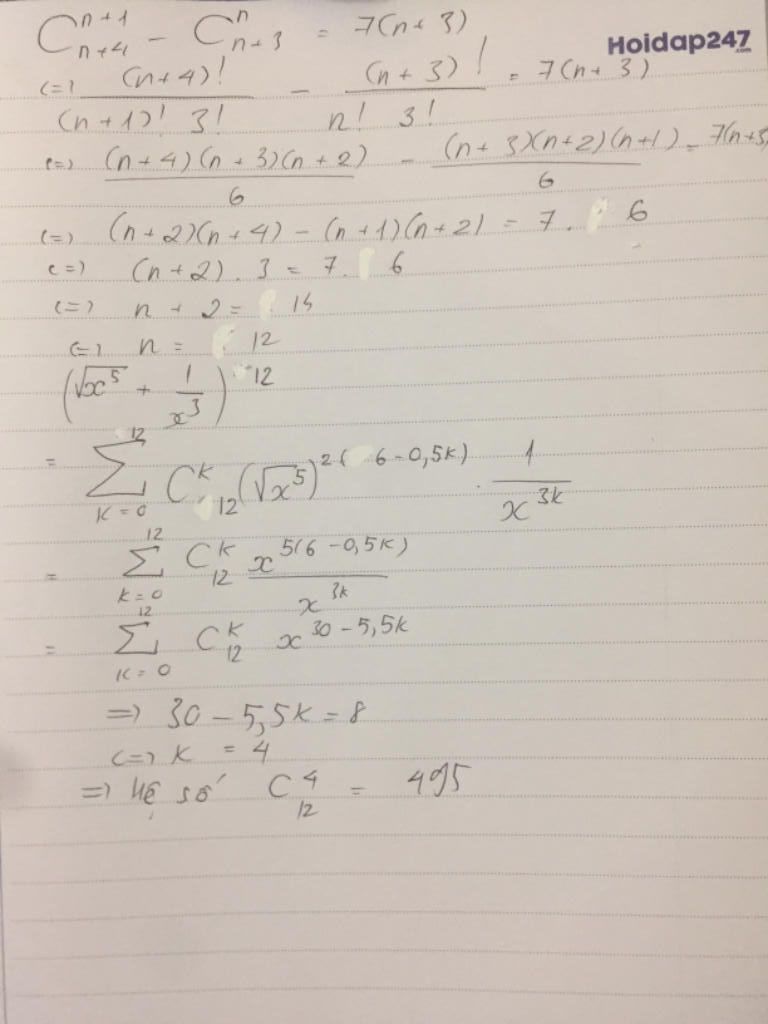 C_{n+4}^{n+1} - C_{n+3}^{n} = 7(n+3)
Hoidap247.com
(=) \frac{(n+4)!}{(n+1)! 3!} - \frac{(n+3)!}{n! 3!} = 7(n+3)
(=) \frac{(n+4)(n+3)(n+2)}{6} - \frac{(n+3)(n+2)(n+1)}{6} = 7(n+3)
(=) (n+2)(n+4) - (n+1)(n+2) = 7 . 6
(=) (n+2) . 3 = 7 . 6
(=) n + 2 = 14
(=) n = 12
(\sqrt{x^5} + \frac{1}{x^3})^{12}
= \sum_{K=0}^{12} C_{12}^{K} (\sqrt{x^5})^{2(6-0,5k)} . \frac{1}{x^{3k}}
= \sum_{k=0}^{12} C_{12}^{k} \frac{x^{5(6-0,5k)}}{x^{3k}}
= \sum_{K=0}^{12} C_{12}^{k} x^{30-5,5k}
=) 30 - 5,5k = 8
(=) K = 4
=) Hệ số C_{12}^{4} = 495